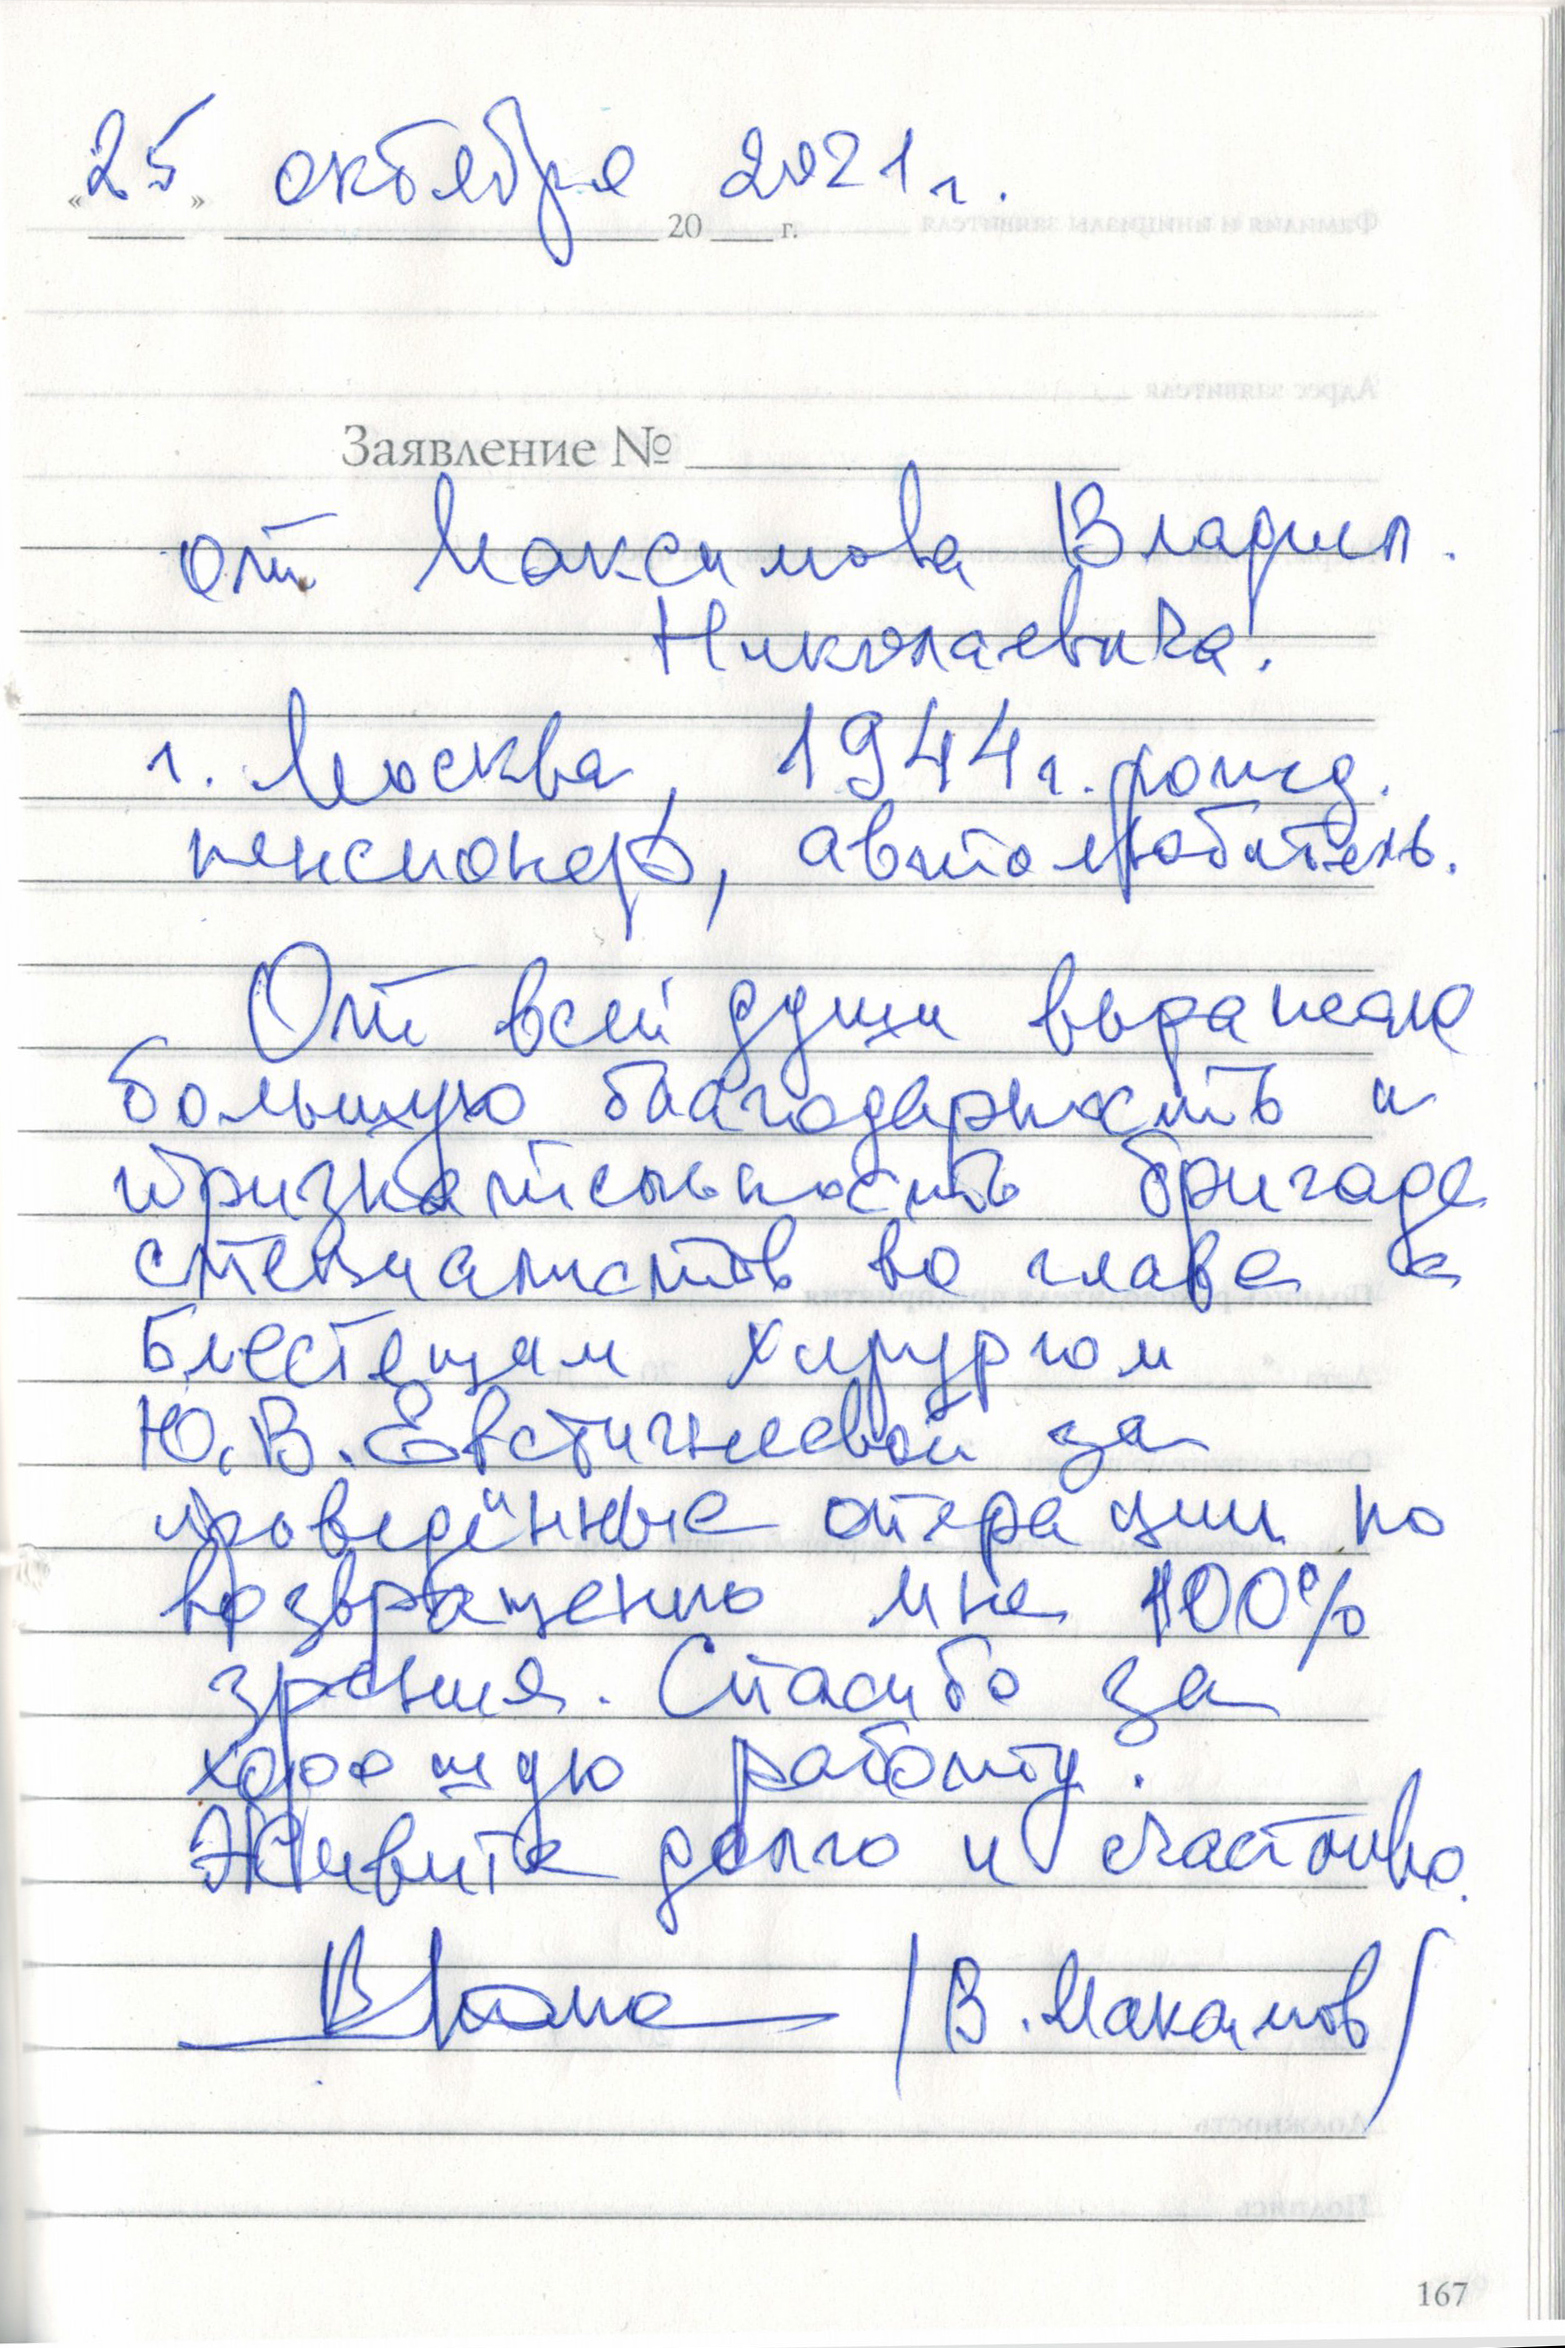 «25» октября 2021 г.
20 г.
Заявление №
от Максимова Владим.
Николаевича.
г. Москва, 1944 г. рожд.
пенсионер, автолюбитель.
От всей души выражаю
большую благодарность и
признательность бригаде
специалистов во главе с
блестещам хирургом
Ю.В. Евстигнеевой за
проведённые операции по
возвращению мне 100%
зрения. Спасибо за
хорошую работу.
Живите долго и счастливо.
/В. Макс. мов/
167